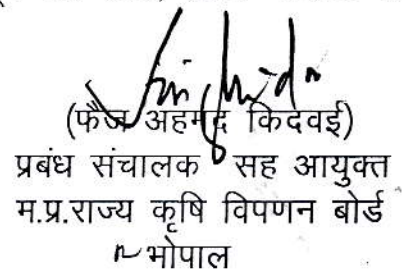 (फैज अहमद किदवई)
प्रबंध संचालक सह आयुक्त
म.प्र.राज्य कृषि विपणन बोर्ड
भोपाल